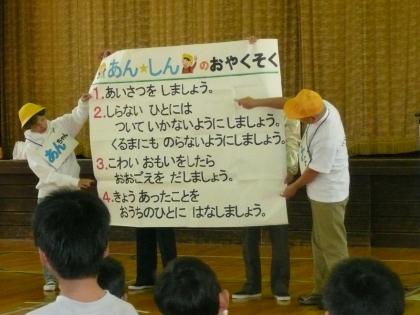 あん★しんのおやくそく
1.あいさつを しましょう。
2.しらない ひとには
ついて いかないようにしましょう。
くるまにも のらないようにしましょう。
3.こわい おもいをしたら
おおごえを だしましょう。
4.きょう あったことを
おうちのひとに はなしましょう。
あんちゃん